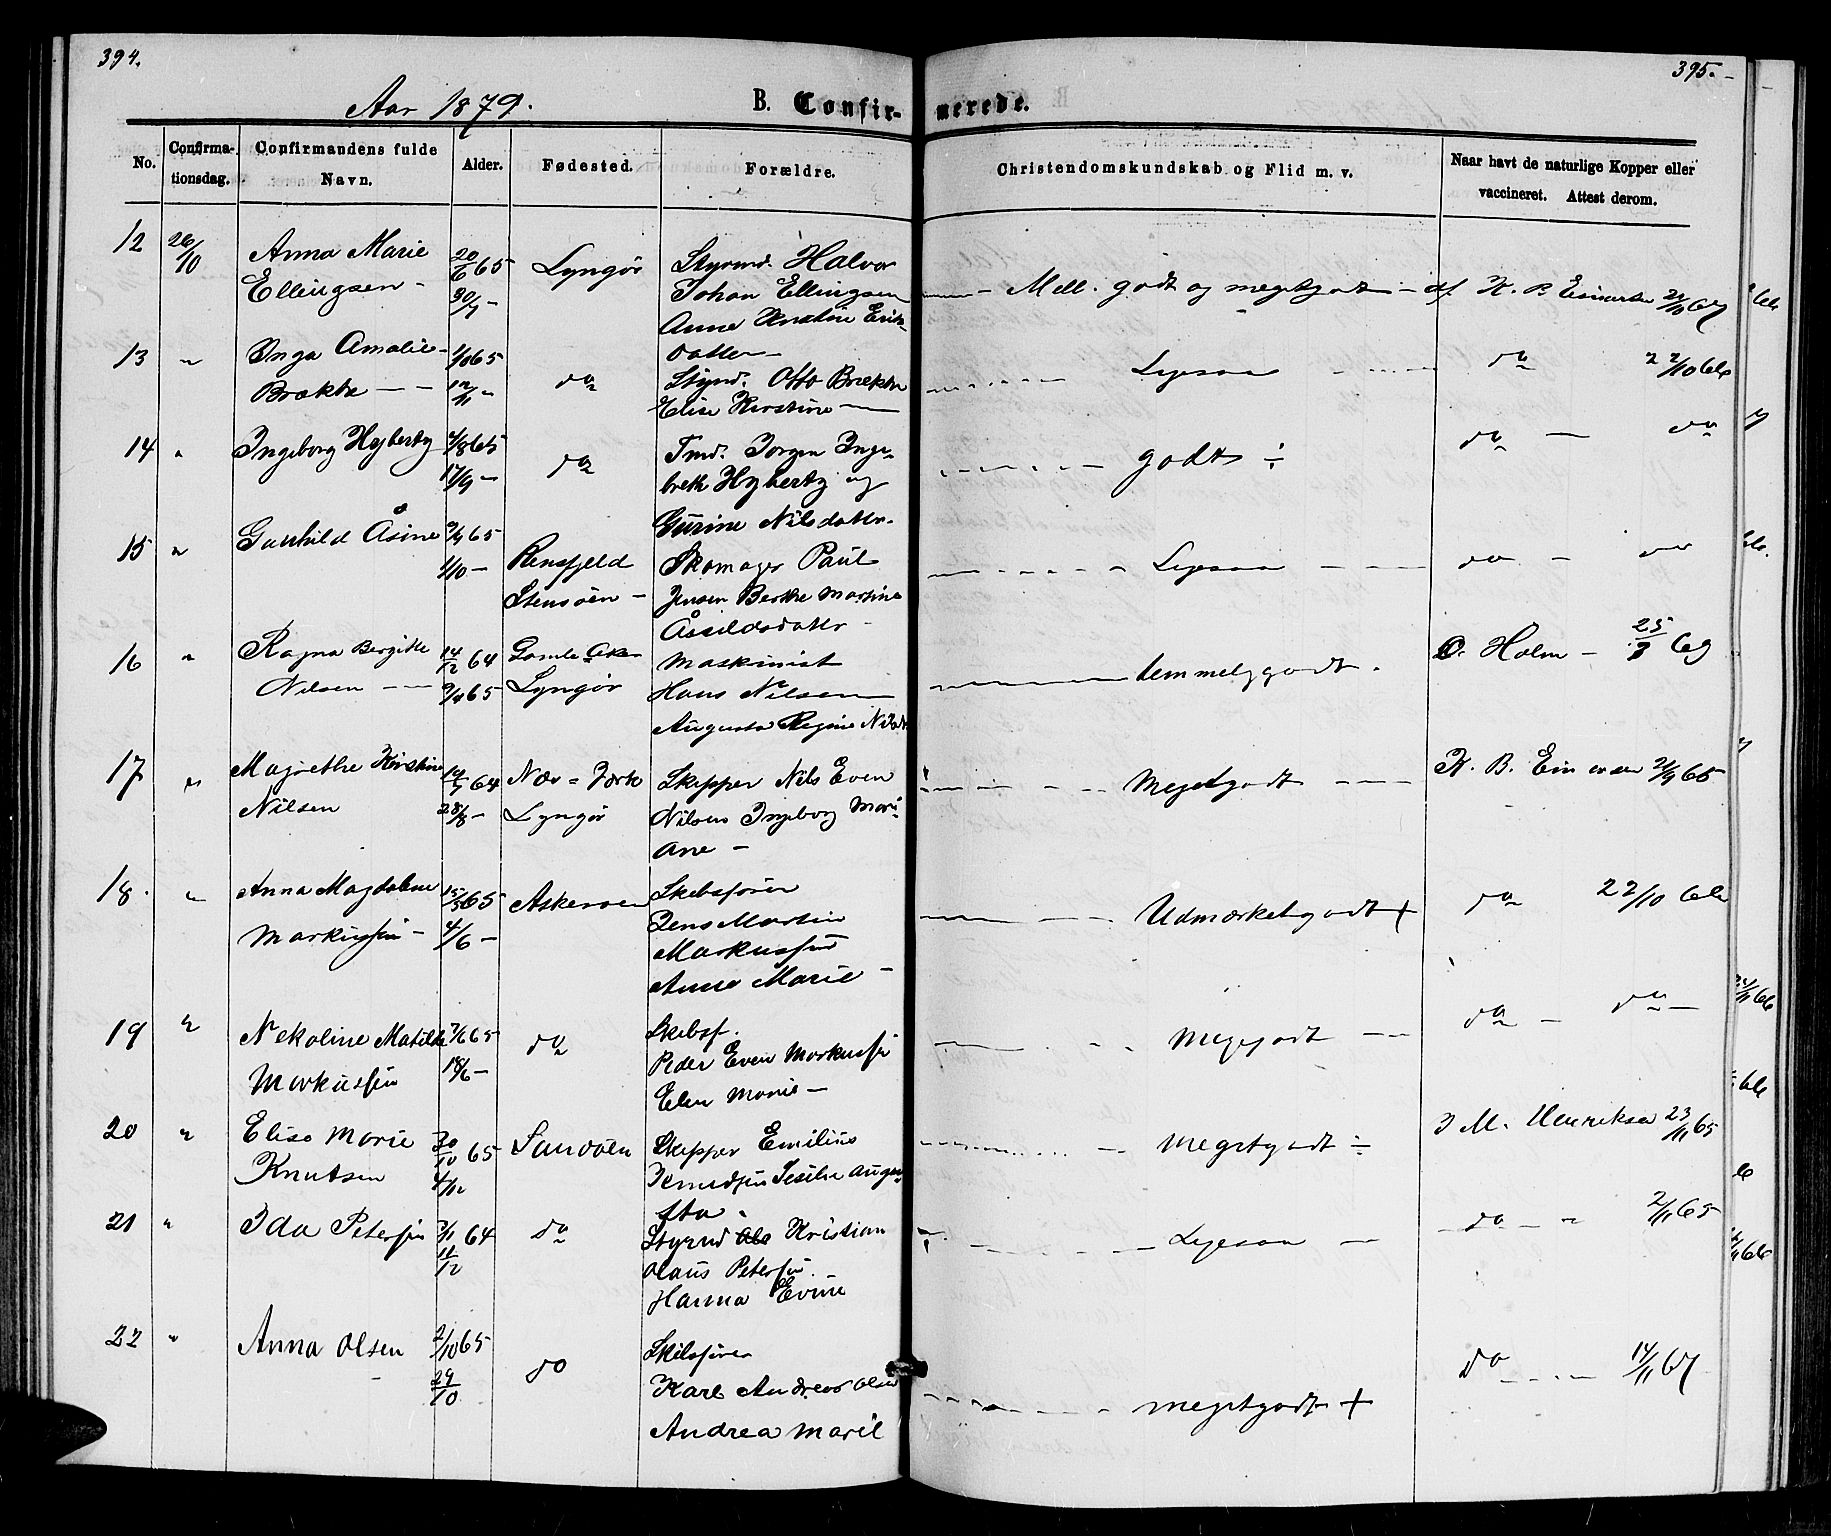 394.
395.
Aar 1879.
B. Confir-
merede.
No.
Confirma-
tionsdag.
Confirmandens fulde
Navn.
Alder.
Fødested.
Forældre.
Christendomskundskab og Flid m. v.
Naar havt de naturlige Kopper eller
vaccineret. Attest derom.
12 26/10 Anna Marie 20/6 65 Lyngør Styrmd. Halvor
Ellingsen - 30/7 - Johan Ellingsen Mell. godt og megetgodt - af K. B. 67
Anne Kirstine Erik-
13 " Inga Amalie 1/10 65 datter -
Brække - - 12/11 " do Styrmd. Otto Brække Ligesaa do 22/10 66
Elise Kirstine -
14 " Ingeborg Hybertz 4/8 65 Tmd. Jørgen Inge-
17/9 - do breth Hybertz og godt ÷ do - do
Gurine Nilsdatter.
15 " Gunhild Åsine 9/9 65
1/10 - Rensfjeld Skomager Paul Ligesaa do - do
Stensøen - Jensen Berthe Martine
Åsildsdatter -
16 " Ragna Bergitte 14/12 64 Gamle Maskinist
Nilsen - 9/4 65 Lyngør Hans Nilsen temmelggodt. O. Holm - 69
Augusta Regine
17 " Magrethe Kirstine 64 Skipper Nils Even
Nilsen 28/8 - Lyngør Nilsens Ingeborg Mari- Megetgodt K. B. 65
ane -
18. " Anna Magdalene 15/5 65 Askerøen Skibsfører
Markussen - 4/6 - Jens Martin Udmærketgodt + do 22/10 66
Markussen
Anne Marie -
19 " Nekoline Matilde 7/6 65 do Skibsf.
Markussen 18/6 - Peder Even Markussen Megetgodt do - do -
Elen Marie -
20 " Elise Marie 30/10 65 Sandøen Skipper Emilius Megetgodt ÷ J M. Henriksen 23/11 65
Knutsen 4/12 Knudsen Augu-
sta.
21 " Ida Petersen 2/11 64 do Styrmd Kristian Ligesaa - do - " 2/11 65
11/12 Olaus Petersen.
Hanna Evine
22 " Anna Olsen 2/10 65 Skibsfører
29/10 do Karl Andreas Olsen megetgodt + do 14/11 67
Andrea Marie